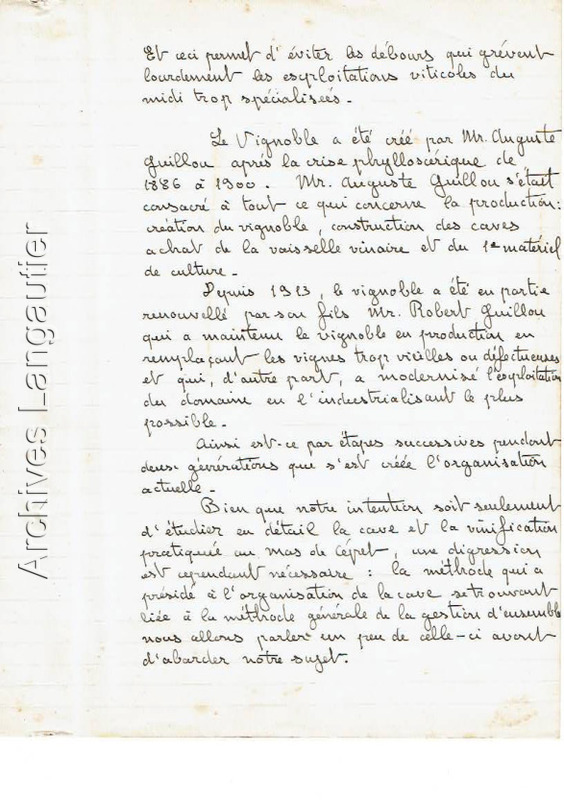 Et ceci permet d'éviter les débours qui grèvent
lourdement les exploitations viticoles du
midi trop spécialisées.
Le Vignoble a été créé par Mr. Auguste
Guillou après la crise phylloxérique de
1886 à 1900. Mr. Auguste Guillou s'était
consacré à tout ce qui concerne la production:
création du vignoble, construction des caves
achat de la vaisselle vinaire et du 1e matériel
de culture.
Depuis 1913, le vignoble a été en partie
renouvellé par son fils Mr. Robert Guillou
qui a maintenu le vignoble en production en
remplaçant les vignes trop vieilles ou défectueuses
et qui, d'autre part, a modernisé l'exploitation
du domaine en l'industrialisant le plus
possible.
Ainsi est-ce par étapes successives pendant
deux générations que s'est créée l'organisation
actuelle.
Bien que notre intention soit seulement
d'étudier en détail la cave et la vinification
pratiquée au mas de Cépet, une digression
est cependant nécessaire : la méthode qui a
présidé à l'organisation de la cave se trouvant
liée à la méthode générale de la gestion d'ensemble
nous allons parler un peu de celle-ci avant
d'abarder notre sujet.
Archives Langautier